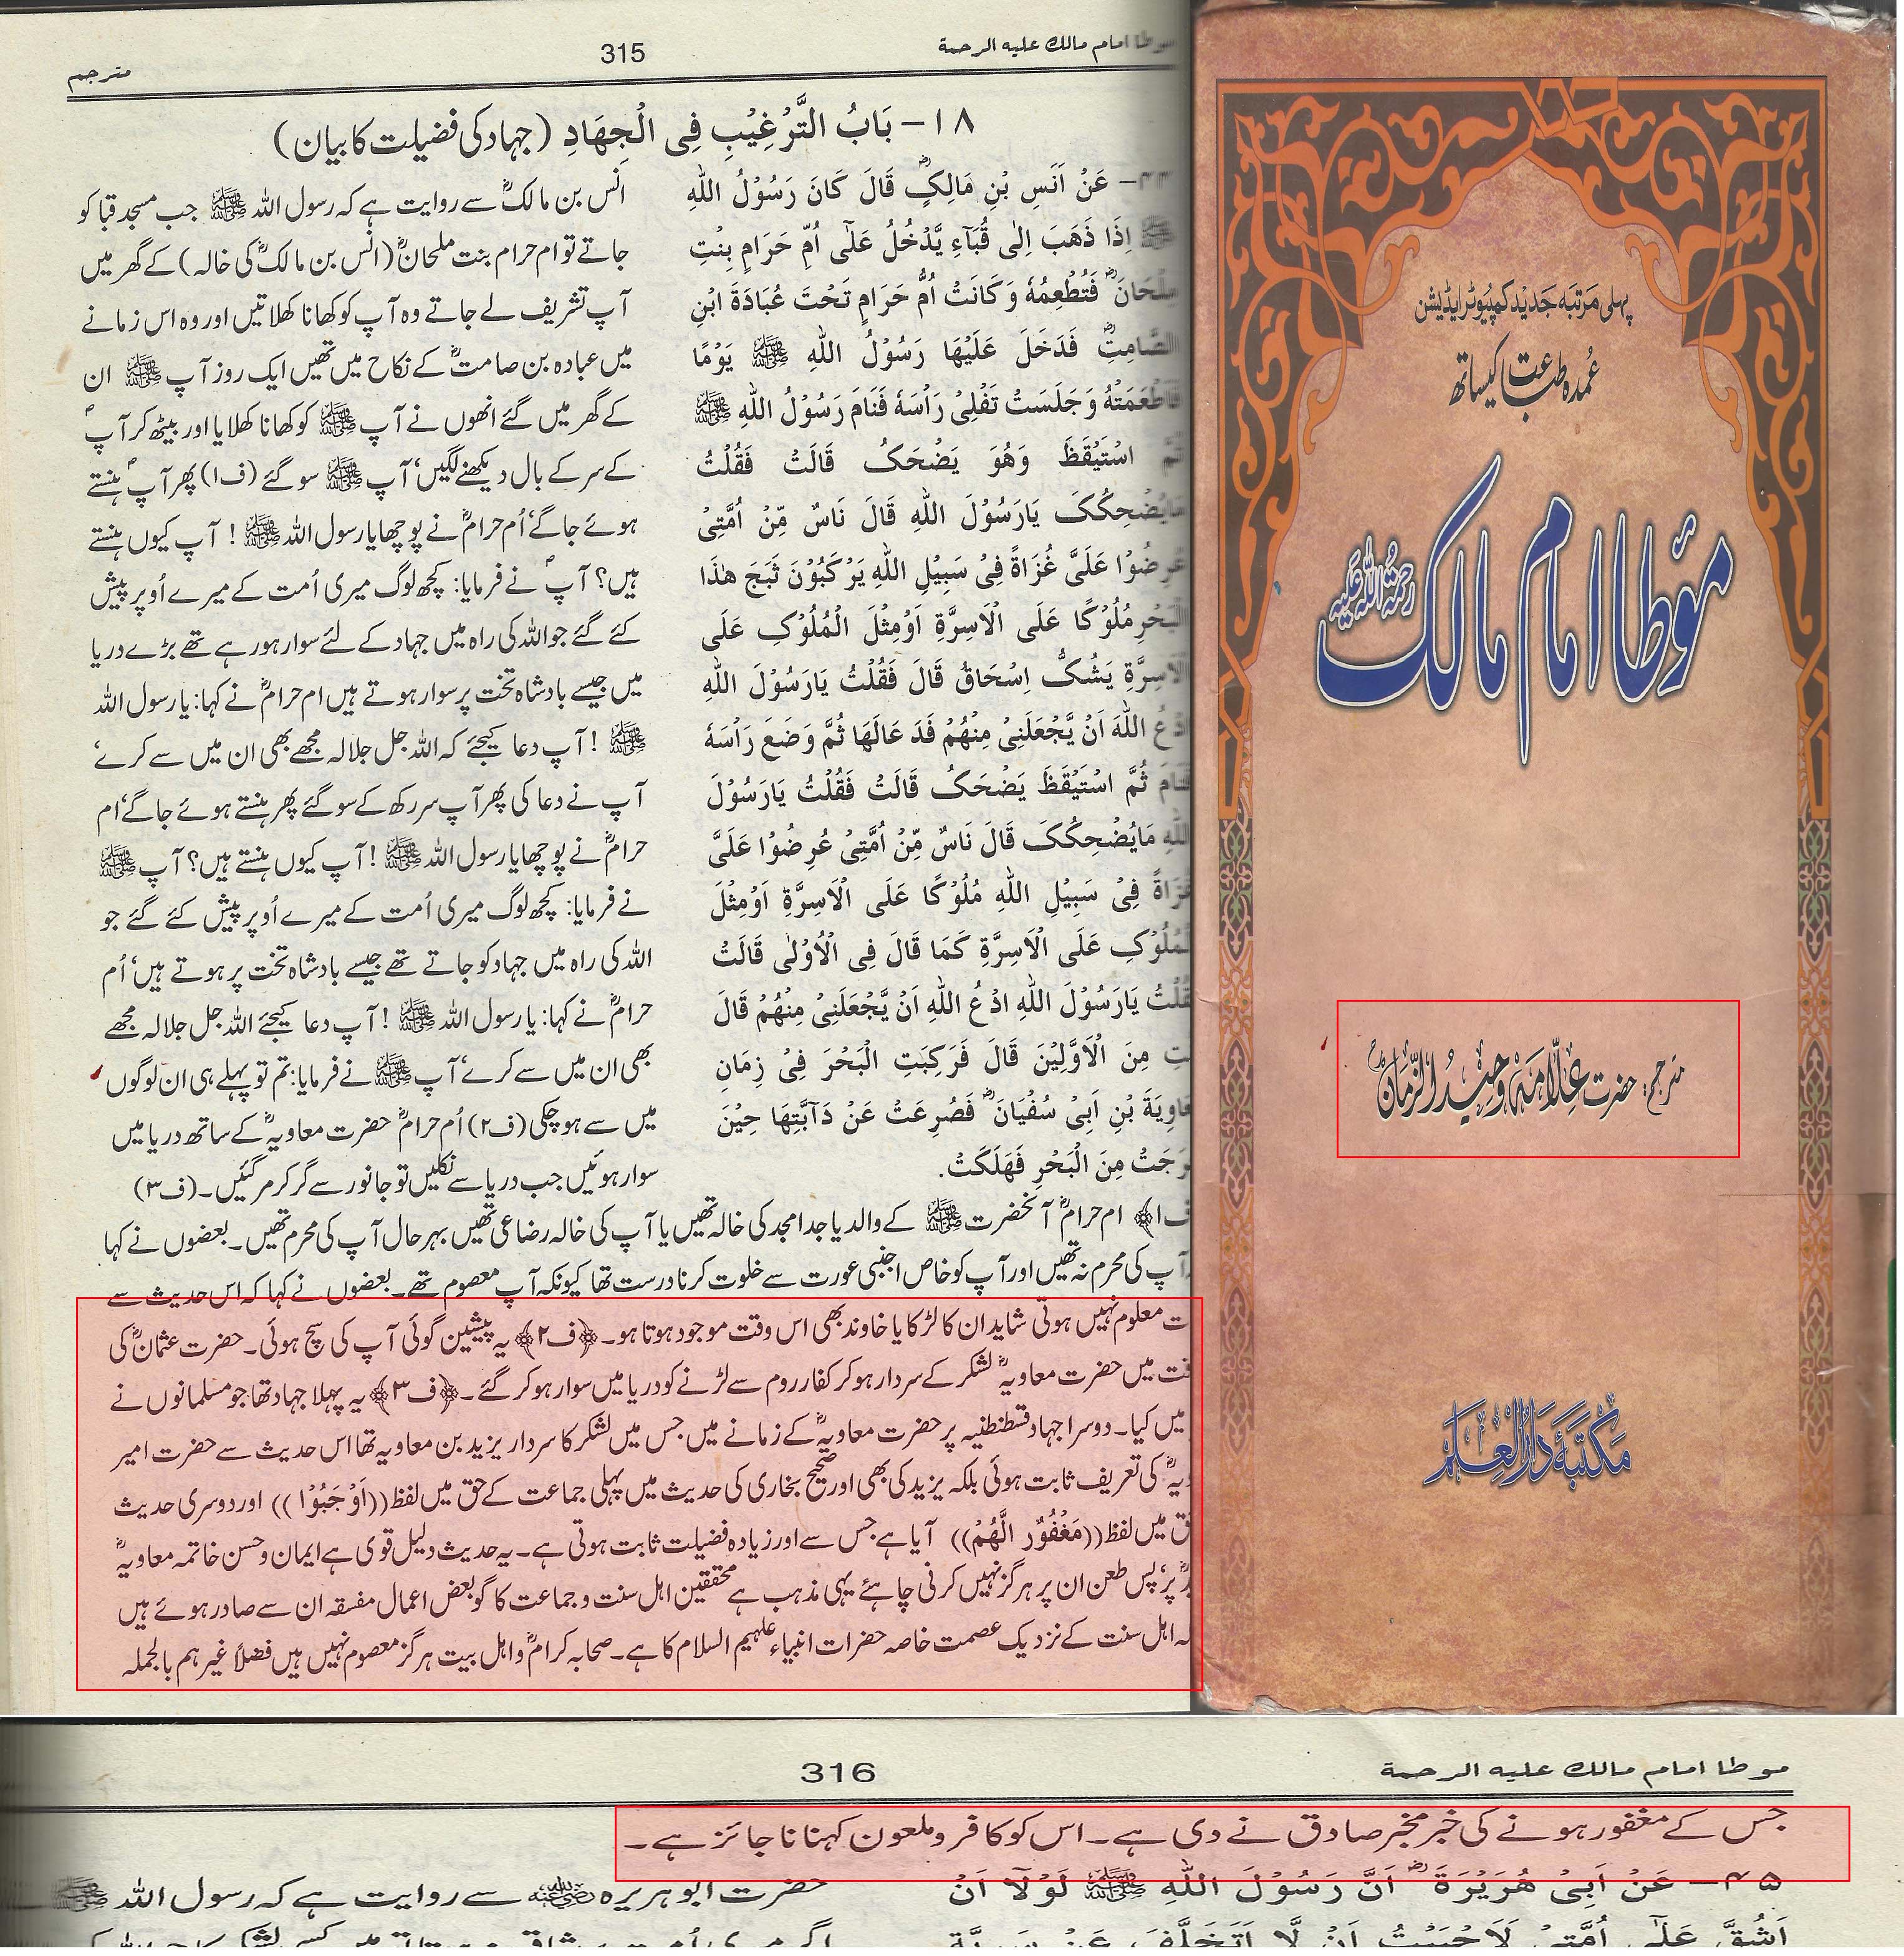 موطا امام مالك عليه الرحمة
315
مترجم
١٨ – بَابُ التَّرْغِيْبِ فِى الْجِهَادِ (جہاد کی فضیلت کا بیان)
عَنْ اَنَسِ بْنِ مَالِكٍؓ قَالَ كَانَ رَسُوْلُ اللّٰهِ
ﷺ اِذَا ذَهَبَ اِلٰى قُبَآءٍ يَّدْخُلُ عَلٰٓى اُمِّ حَرَامٍ بِنْتِ
مِلْحَانَؓ فَتُطْعِمُهٗ وَكَانَتْ اُمُّ حَرَامٍ تَحْتَ عُبَادَةَ ابْنِ
الصَّامِتِؓ فَدَخَلَ عَلَيْهَا رَسُوْلُ اللّٰهِ ﷺ يَوْمًا
فَاَطْعَمَتْهُ وَجَلَسَتْ تَفْلِىْ رَاْسَهٗ فَنَامَ رَسُوْلُ اللّٰهِ ﷺ
ثُمَّ اسْتَيْقَظَ وَهُوَ يَضْحَكُ قَالَتْ فَقُلْتُ
مَايُضْحِكُكَ يَارَسُوْلَ اللّٰهِ قَالَ نَاسٌ مِّنْ اُمَّتِىْ
عُرِضُوْا عَلَىَّ غُزَاةً فِىْ سَبِيْلِ اللّٰهِ يَرْكَبُوْنَ ثَبَجَ هٰذَا
الْبَحْرِ مُلُوْكًا عَلَى الْاَسِرَّةِ اَوْمِثْلَ الْمُلُوْكِ عَلَى
الْاَسِرَّةِ يَشُكُّ اِسْحَاقُ قَالَ فَقُلْتُ يَارَسُوْلَ اللّٰهِ
ادْعُ اللّٰهَ اَنْ يَّجْعَلَنِىْ مِنْهُمْ فَدَعَالَهَا ثُمَّ وَضَعَ رَاْسَهٗ
فَنَامَ ثُمَّ اسْتَيْقَظَ يَضْحَكُ قَالَتْ فَقُلْتُ يَارَسُوْلَ
اللّٰهِ مَايُضْحِكُكَ قَالَ نَاسٌ مِّنْ اُمَّتِىْ عُرِضُوْا عَلَىَّ
غُزَاةً فِىْ سَبِيْلِ اللّٰهِ مُلُوْكًا عَلَى الْاَسِرَّةِ اَوْمِثْلَ
الْمُلُوْكِ عَلَى الْاَسِرَّةِ كَمَا قَالَ فِى الْاُوْلٰى قَالَتْ
فَقُلْتُ يَارَسُوْلَ اللّٰهِ ادْعُ اللّٰهِ اَنْ يَّجْعَلَنِىْ مِنْهُمْ قَالَ
مِنَ الْاَوَّلِيْنَ قَالَ فَرَكِبَتِ الْبَحْرَ فِىْ زِمَانِ
مُعَاوِيَةَ بْنِ اَبِىْ سُفْيَانَؓ فَصُرِعَتْ عَنْ دَآبَّتِهَا حِيْنَ
خَرَجَتْ مِنَ الْبَحْرِ فَهَلَكَتْ.
انس بن مالکؓ سے روایت ہے کہ رسول اللہ ﷺ جب مسجد قبا کو
جاتے تو ام حرام بنت ملحانؓ (انس بن مالکؓ کی خالہ) کے گھر میں
آپ تشریف لے جاتے وہ آپ کو کھانا کھلاتیں اور وہ اس زمانے
میں عبادہ بن صامتؓ کے نکاح میں تھیں ایک روز آپ ﷺ ان
کے گھر میں گئے انھوں نے آپ ﷺ کو کھانا کھلایا اور بیٹھ کر آپؐ
کے سر کے بال دیکھنے لگیں، آپ ﷺ سو گئے (ف۱) پھر آپؐ ہنستے
ہوئے جاگے، اُم حرامؓ نے پوچھا یا رسول اللہ ﷺ ! آپ کیوں ہنستے
ہیں؟ آپؐ نے فرمایا: کچھ لوگ میری اُمت کے میرے اُوپر پیش
کئے گئے جو اللہ کی راہ میں جہاد کے لئے سوار ہو رہے تھے بڑے دریا
میں جیسے بادشاہ تخت پر سوار ہوتے ہیں ام حرامؓ نے کہا: یا رسول اللہ
ﷺ ! آپ دعا کیجئے کہ اللہ جل جلالہ مجھے بھی ان میں سے کرے،
آپ نے دعا کی پھر آپ سر رکھ کے سو گئے پھر ہنستے ہوئے جاگے، ام
حرامؓ نے پوچھا یا رسول اللہ ﷺ ! آپ کیوں ہنستے ہیں؟ آپ ﷺ
نے فرمایا: کچھ لوگ میری اُمت کے میرے اُوپر پیش کئے گئے جو
اللہ کی راہ میں جہاد کو جاتے تھے جیسے بادشاہ تخت پر ہوتے ہیں، اُم
حرامؓ نے کہا: یا رسول اللہ ﷺ ! آپ دعا کیجئے اللہ جل جلالہ مجھے
بھی ان میں سے کرے، آپ ﷺ نے فرمایا: تم تو پہلے ہی ان لوگوں
میں سے ہو چکی (ف۲) اُم حرامؓ حضرت معاویہؓ کے ساتھ دریا میں
سوار ہوئیں جب دریا سے نکلیں تو جانور سے گر کر مر گئیں۔ (ف۳)
ف۱﴾ ام حرامؓ آنحضرت ﷺ کے والد یا جد امجد کی خالہ تھیں یا آپ کی خالہ رضاعی تھیں بہر حال آپ کی محرم تھیں۔ بعضوں نے کہا
آپ کی محرم نہ تھیں اور آپ کو خاص اجنبی عورت سے خلوت کرنا درست تھا کیونکہ آپ معصوم تھے۔ بعضوں نے کہا کہ اس حدیث سے
معلوم نہیں ہوتی شاید ان کا لڑکا یا خاوند بھی اس وقت موجود ہوتا ہو۔ ﴿ف۲﴾ یہ پیشین گوئی آپ کی سچ ہوئی۔ حضرت عثمانؓ کی
میں حضرت معاویہؓ لشکر کے سردار ہو کر کفار روم سے لڑنے کو دریا میں سوار ہو کر گئے۔ ﴿ف۳﴾ یہ پہلا جہاد تھا جو مسلمانوں نے
میں کیا۔ دوسرا جہاد قسطنطنیہ پر حضرت معاویہؓ کے زمانے میں جس میں لشکر کا سردار یزید بن معاویہ تھا اس حدیث سے حضرت امیر
کی تعریف ثابت ہوئی بلکہ یزید کی بھی اور صحیح بخاری کی حدیث میں پہلی جماعت کے حق میں لفظ ((اَوْجَبُوْا)) اور دوسری حدیث
میں لفظ ((مَغْفُوْرٌ الَّهُمْ)) آیا ہے جس سے اور زیادہ فضیلت ثابت ہوتی ہے۔ یہ حدیث دلیل قوی ہے ایمان و حسن خاتمہ معاویہؓ
پر، پس طعن ان پر ہرگز نہیں کرنی چاہئے یہی مذہب ہے محققین اہل سنت و جماعت کا گو بعض اعمال مفسقہ ان سے صادر ہوئے ہیں
اہل سنت کے نزدیک عصمت خاصہ حضرات انبیاء علیہم السلام کا ہے۔ صحابہ کرامؓ و اہل بیت ہرگز معصوم نہیں ہیں فضلاً غیر ہم بالجملہ
پہلی مرتبہ جدید کمپیوٹر ایڈیشن
عمدہ طباعت کیساتھ
مؤطا امام مالک رحمۃ اللہ علیہ
مترجم: حضرت علّامہ وحید الزّمانؒ
مکتبۂ دارالعلم
316
موطا امام مالك عليه الرحمة
جس کے مغفور ہونے کی خبر مخبر صادق نے دی ہے۔ اس کو کافر و ملعون کہنا ناجائز ہے۔
٤٥– عَنْ اَبِىْ هُرَيْرَةَؓ اَنَّ رَسُوْلَ اللّٰهِ ﷺ لَوْلَآ اَنْ
اَشُقَّ عَلٰٓى اُمَّتِىْ لَاَحْبَبْتُ اَنْ لَّا اَتَخَلَّفَ عَنْ سَرِيَّةٍ
حضرت ابوہریرہ رضی اللہ عنہ سے روایت ہے کہ رسول اللہ ﷺ